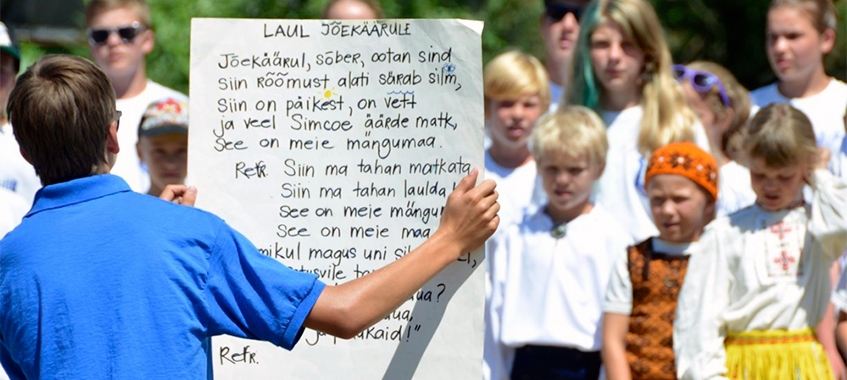 LAUL JÕEKÄÄRULE
JÕEKÄÄRUL, SÕBER, OOTAN SIND
SIIN RÕÕMUST ALATI SÄRAB SILM,
SIIN ON PÄIKEST, ON VETT
JA VEEL SIMCOE ÄÄRDE MATK,
SEE ON MEIE MÄNGUMAA.
Refr. SIIN MA TAHAN MATKATA
SIIN MA TAHAN LAULDA
SEE ON MEIE
SEE ON MEIE
MAGUS UNI
Refr.